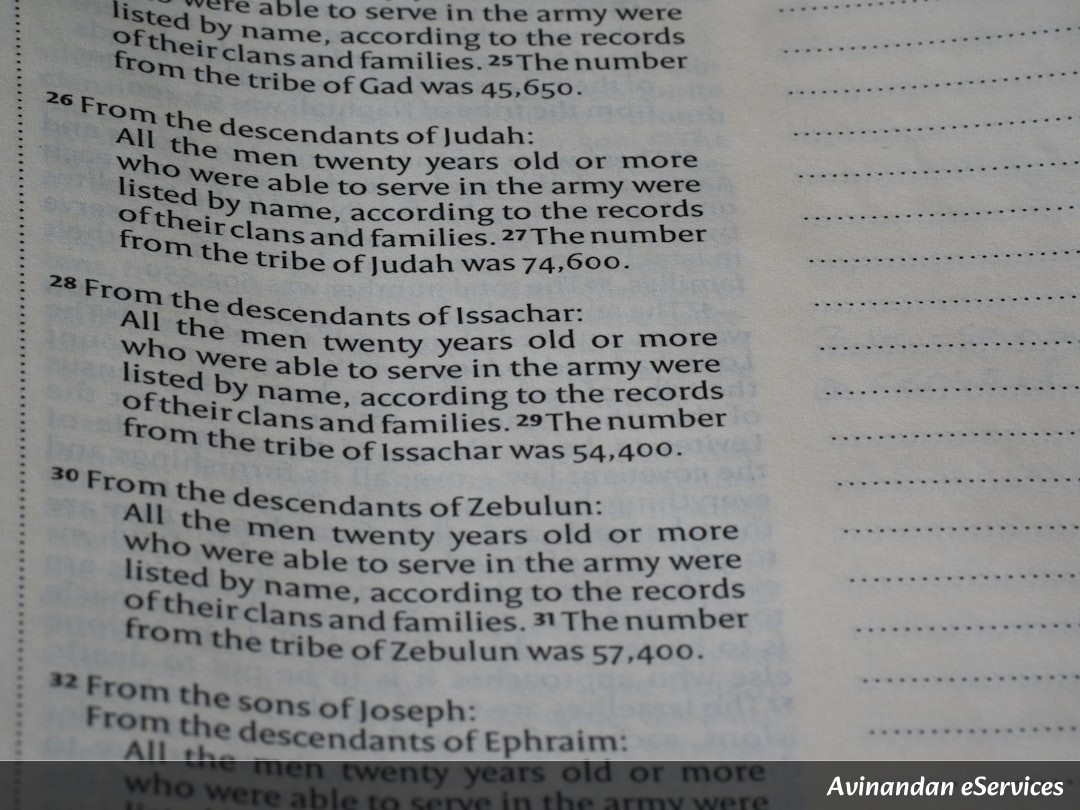 were able to serve in the army were
listed by name, according to the records
of their clans and families. 25 The number
from the tribe of Gad was 45,650.
26 From the descendants of Judah:
All the men twenty years old or more
who were able to serve in the army were
listed by name, according to the records
of their clans and families. 27 The number
from the tribe of Judah was 74,600.
28 From the descendants of Issachar:
All the men twenty years old or more
who were able to serve in the army were
listed by name, according to the records
of their clans and families. 29 The number
from the tribe of Issachar was 54,400.
30 From the descendants of Zebulun:
All the men twenty years old or more
who were able to serve in the army were
listed by name, according to the records
of their clans and families. 31 The number
from the tribe of Zebulun was 57,400.
32 From the sons of Joseph:
From the descendants of Ephraim:
All the men twenty years old or more
who were able to serve in the army were
Avinandan eServices